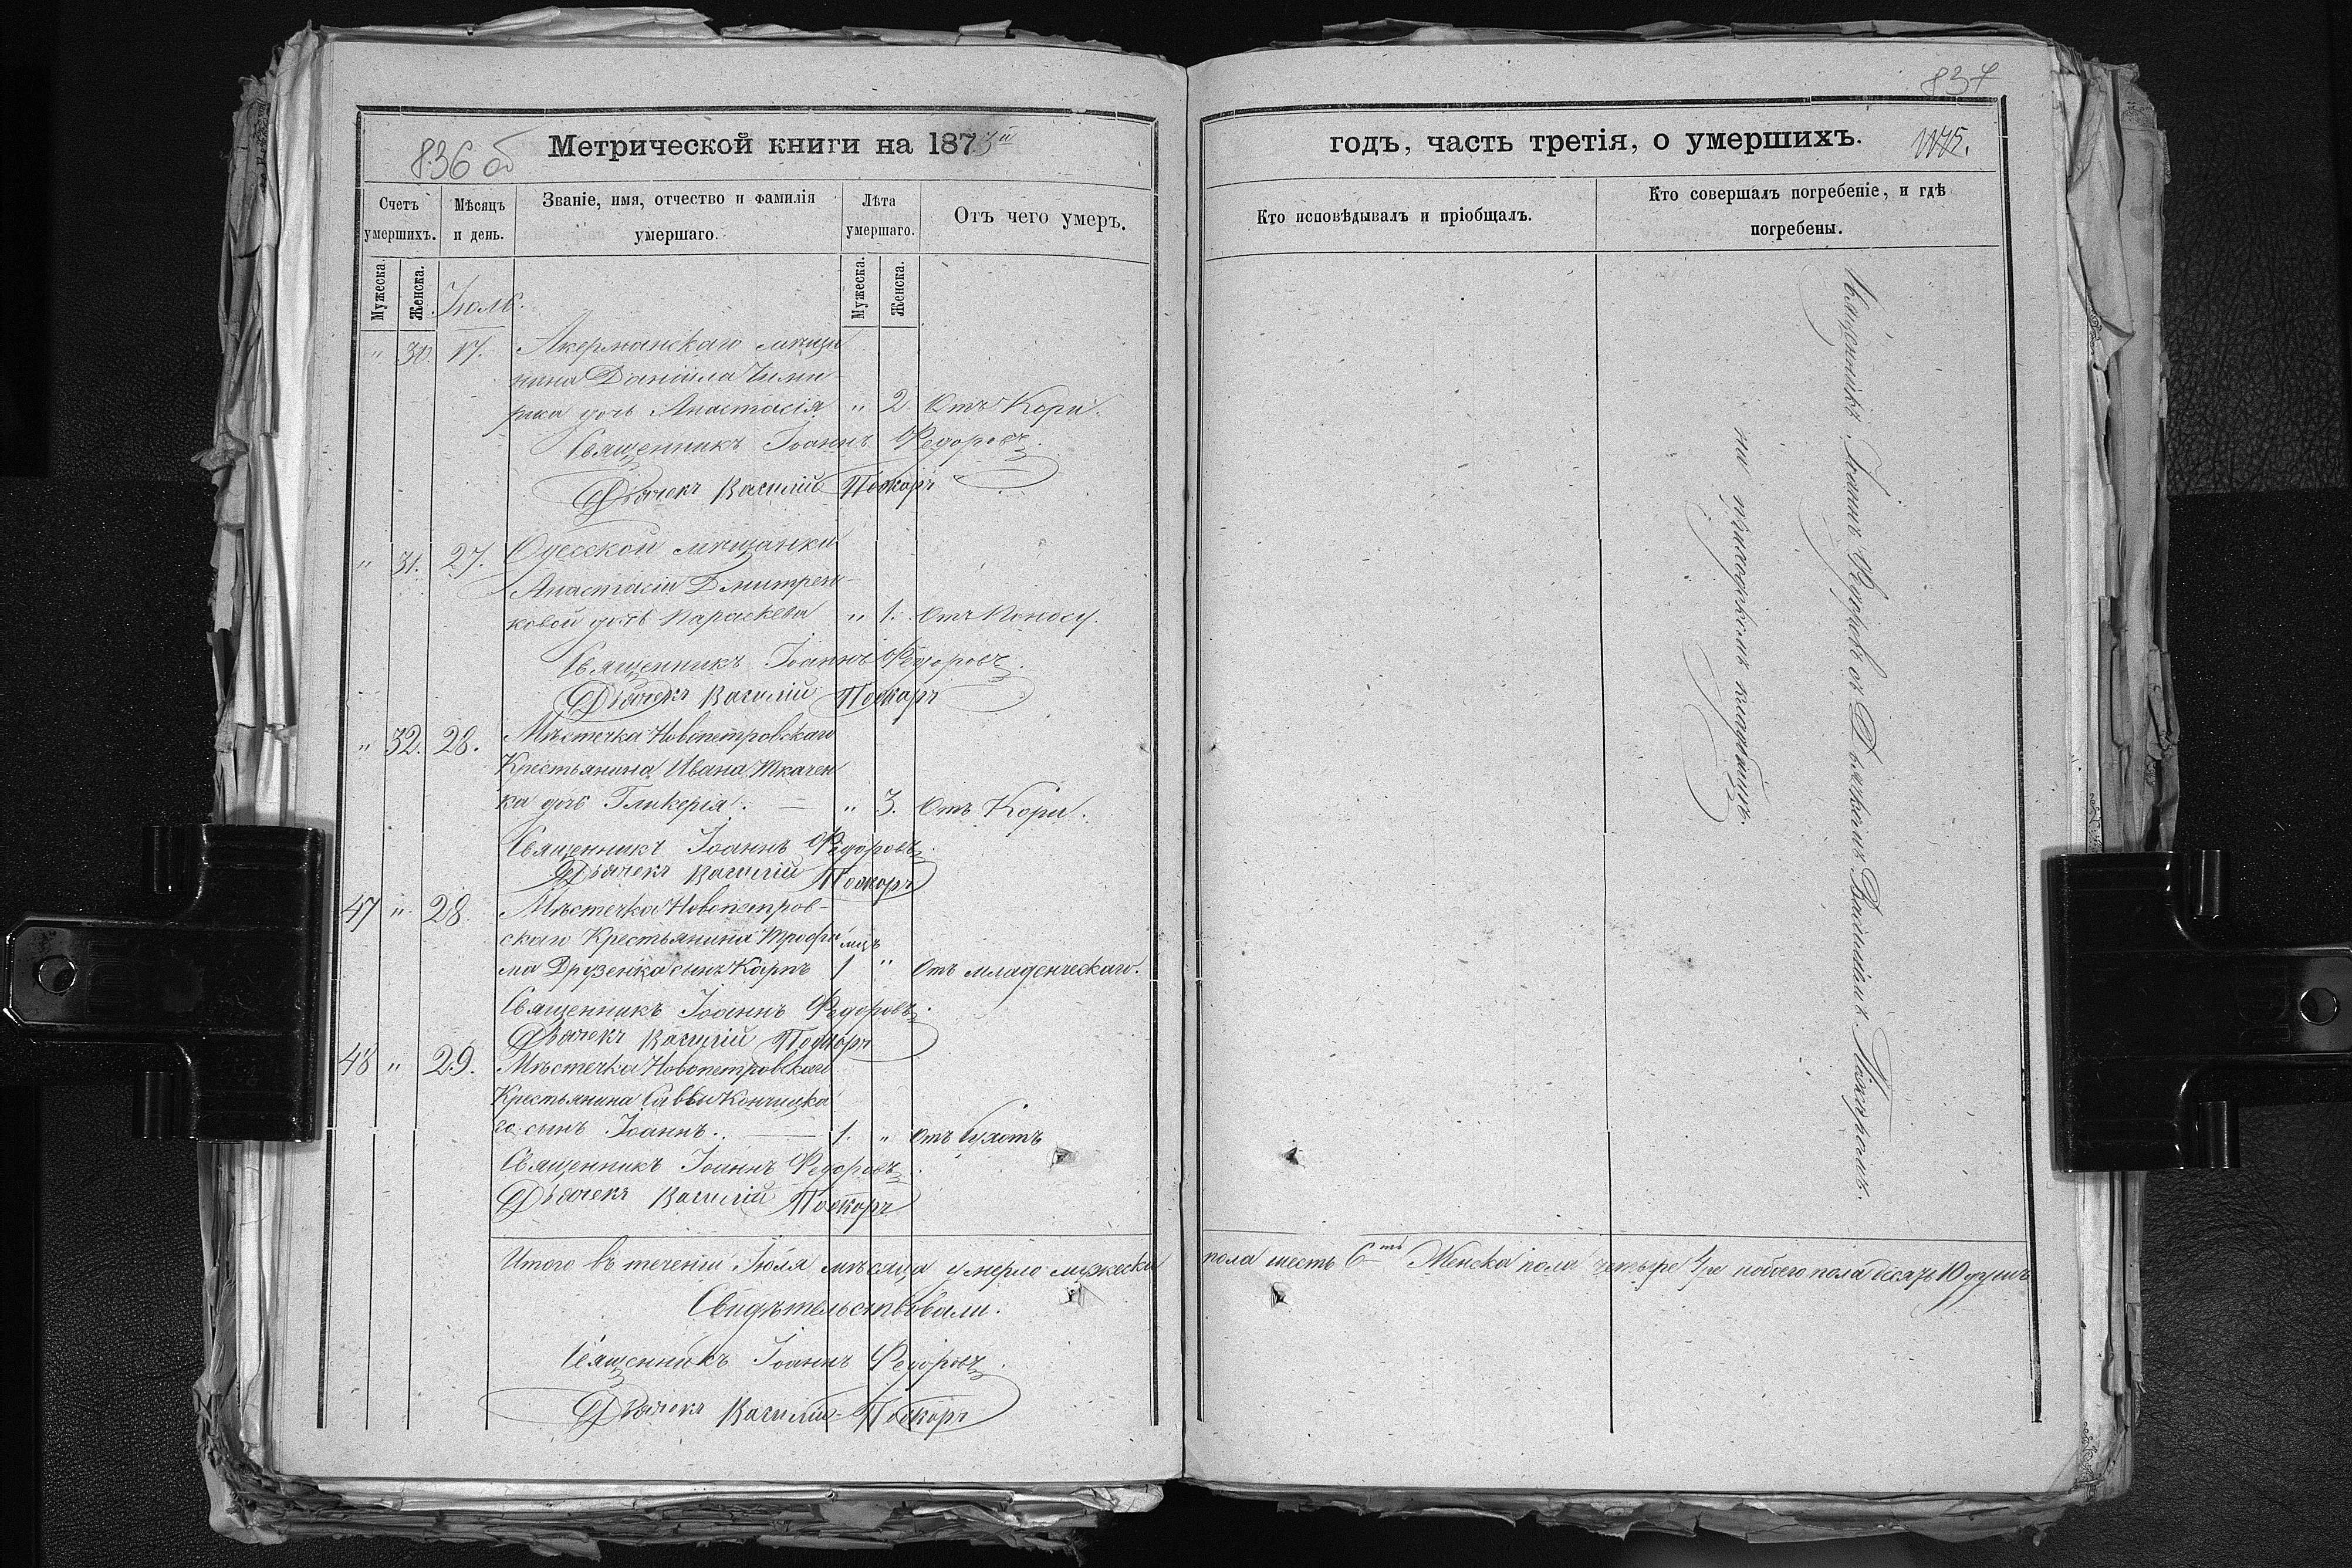 836 об
Метрической книги на 1873й
Счетъ умершихъ.
Мѣсяцъ и день.
Званіе, имя, отчество и фамилія умершаго.
Лѣта умершаго.
Отъ чего умеръ.
Мужеска.
Женска.
Мужеска.
Женска.
Іюль.
" 30. 17. Акерманскаго мѣща
нина Даніила
дочь Анастасія " 2 Отъ Кори.
Священникъ Іоаннъ Федоровъ
Дьячекъ Василій
" 31. 27. Одесской мѣщанки
Анастасіи Дмитрен-
ковой дочь Параскева " 1. Отъ Поносу.
Священникъ Іоаннъ Федоровъ
Дьячекъ Василій
" 32. 28. Мѣстечка Новопетровскаго
Крестьянина Ивана Ткачен
ка дочь Гликерія. — " 3. Отъ Кори.
Священникъ Іоаннъ Федоровъ
Дьячекъ Василій
47 " 28. Мѣстечка Новопетров-
скаго Крестьянина Трофи мцъ
ма Друзенка сынъ Карпъ 1 " Отъ младенческаго.
Священникъ Іоаннъ Федоровъ
Дьячекъ Василій
48 " 29. Мѣстечка Новопетровскаго
Крестьянина Саввы Кончицка
го сынъ Іоаннъ. — 1. " Отъ
Священникъ Іоаннъ Федоровъ
Дьячекъ Василій
Итого въ теченіи Іюля мѣсяца умерло мужеска
Свидѣтельствовали.
Священникъ Іоаннъ Федоровъ
Дьячекъ Василій
837
годъ, часть третія, о умершихъ.
1175.
Кто исповѣдывалъ и пріобщалъ.
Кто совершалъ погребеніе, и гдѣ погребены.
Священникъ Іоаннъ Федоровъ съ Дьячкомъ Василіемъ
на приходскомъ кладбищѣ.
пола шесть 6ть Женска пола четыре 4ре обоего пола десять 10 душъ